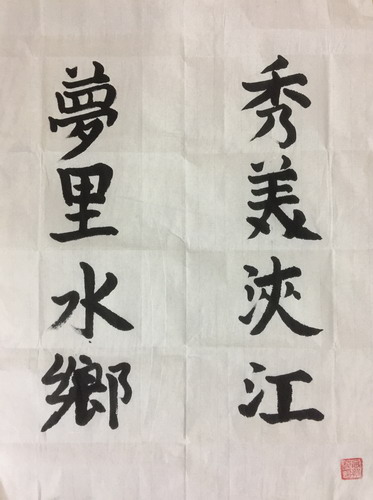 秀美浹江
夢里水鄉